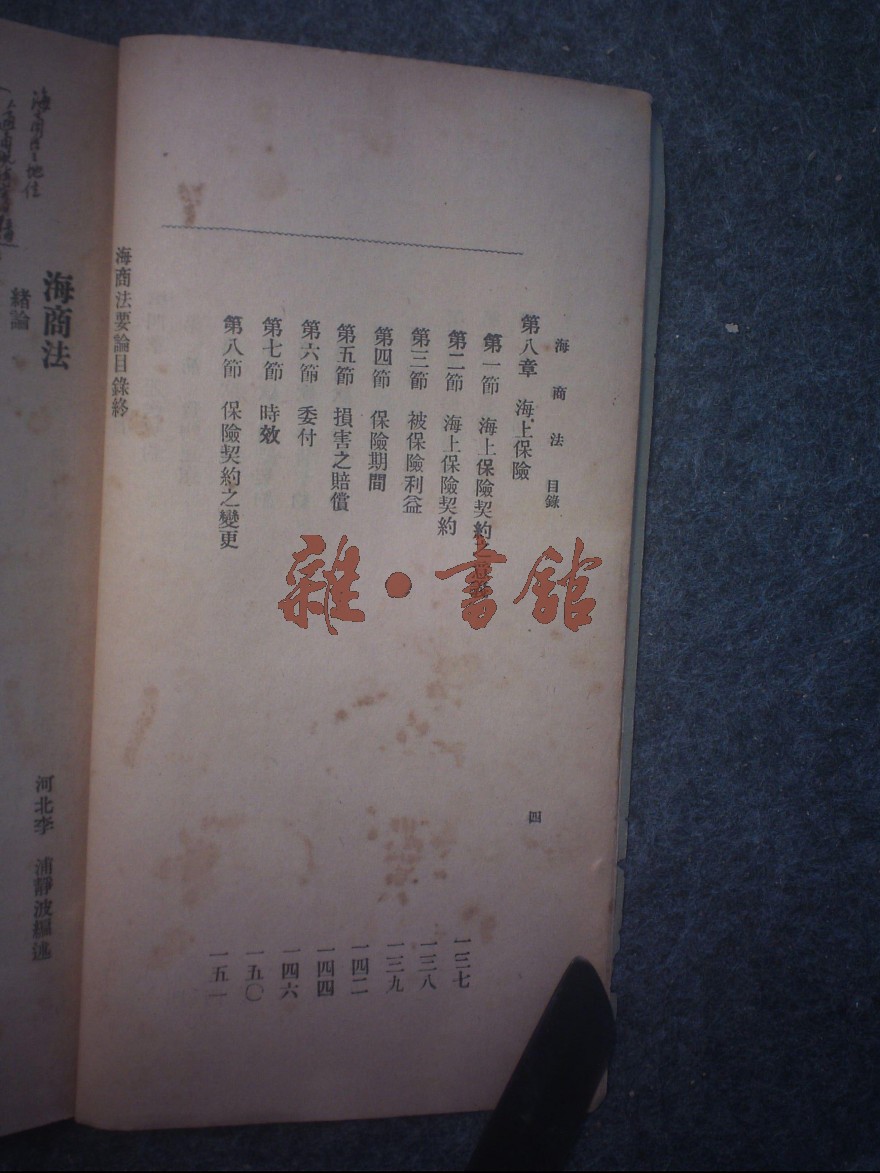 海商法 目錄
四
第八章 海上保險
第一節 海上保險契約之意義 一三七
第二節 海上保險契約 一三八
第三節 被保險利益 一三九
第四節 保險期間 一四二
第五節 損害之賠償 一四四
第六節 委付 一四六
第七節 時效 一五〇
第八節 保險契約之變更 一五一
海商法要論目錄終
海商法
河北李 浦靜波編述
緒論
雜·書館